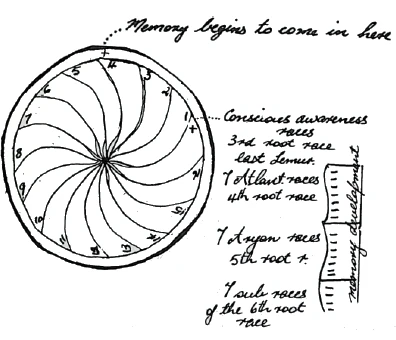 Memory begins to come in here
+
4
3
2
1
+
5
6
7
8
9
10
11
12
13
14
15
Conscious awareness
races
3rd root race
last Lemur.
7 Atlant races
4th root race
7 Aryan races
5th root r.
7 sub races
of the 6th root
race
memory development